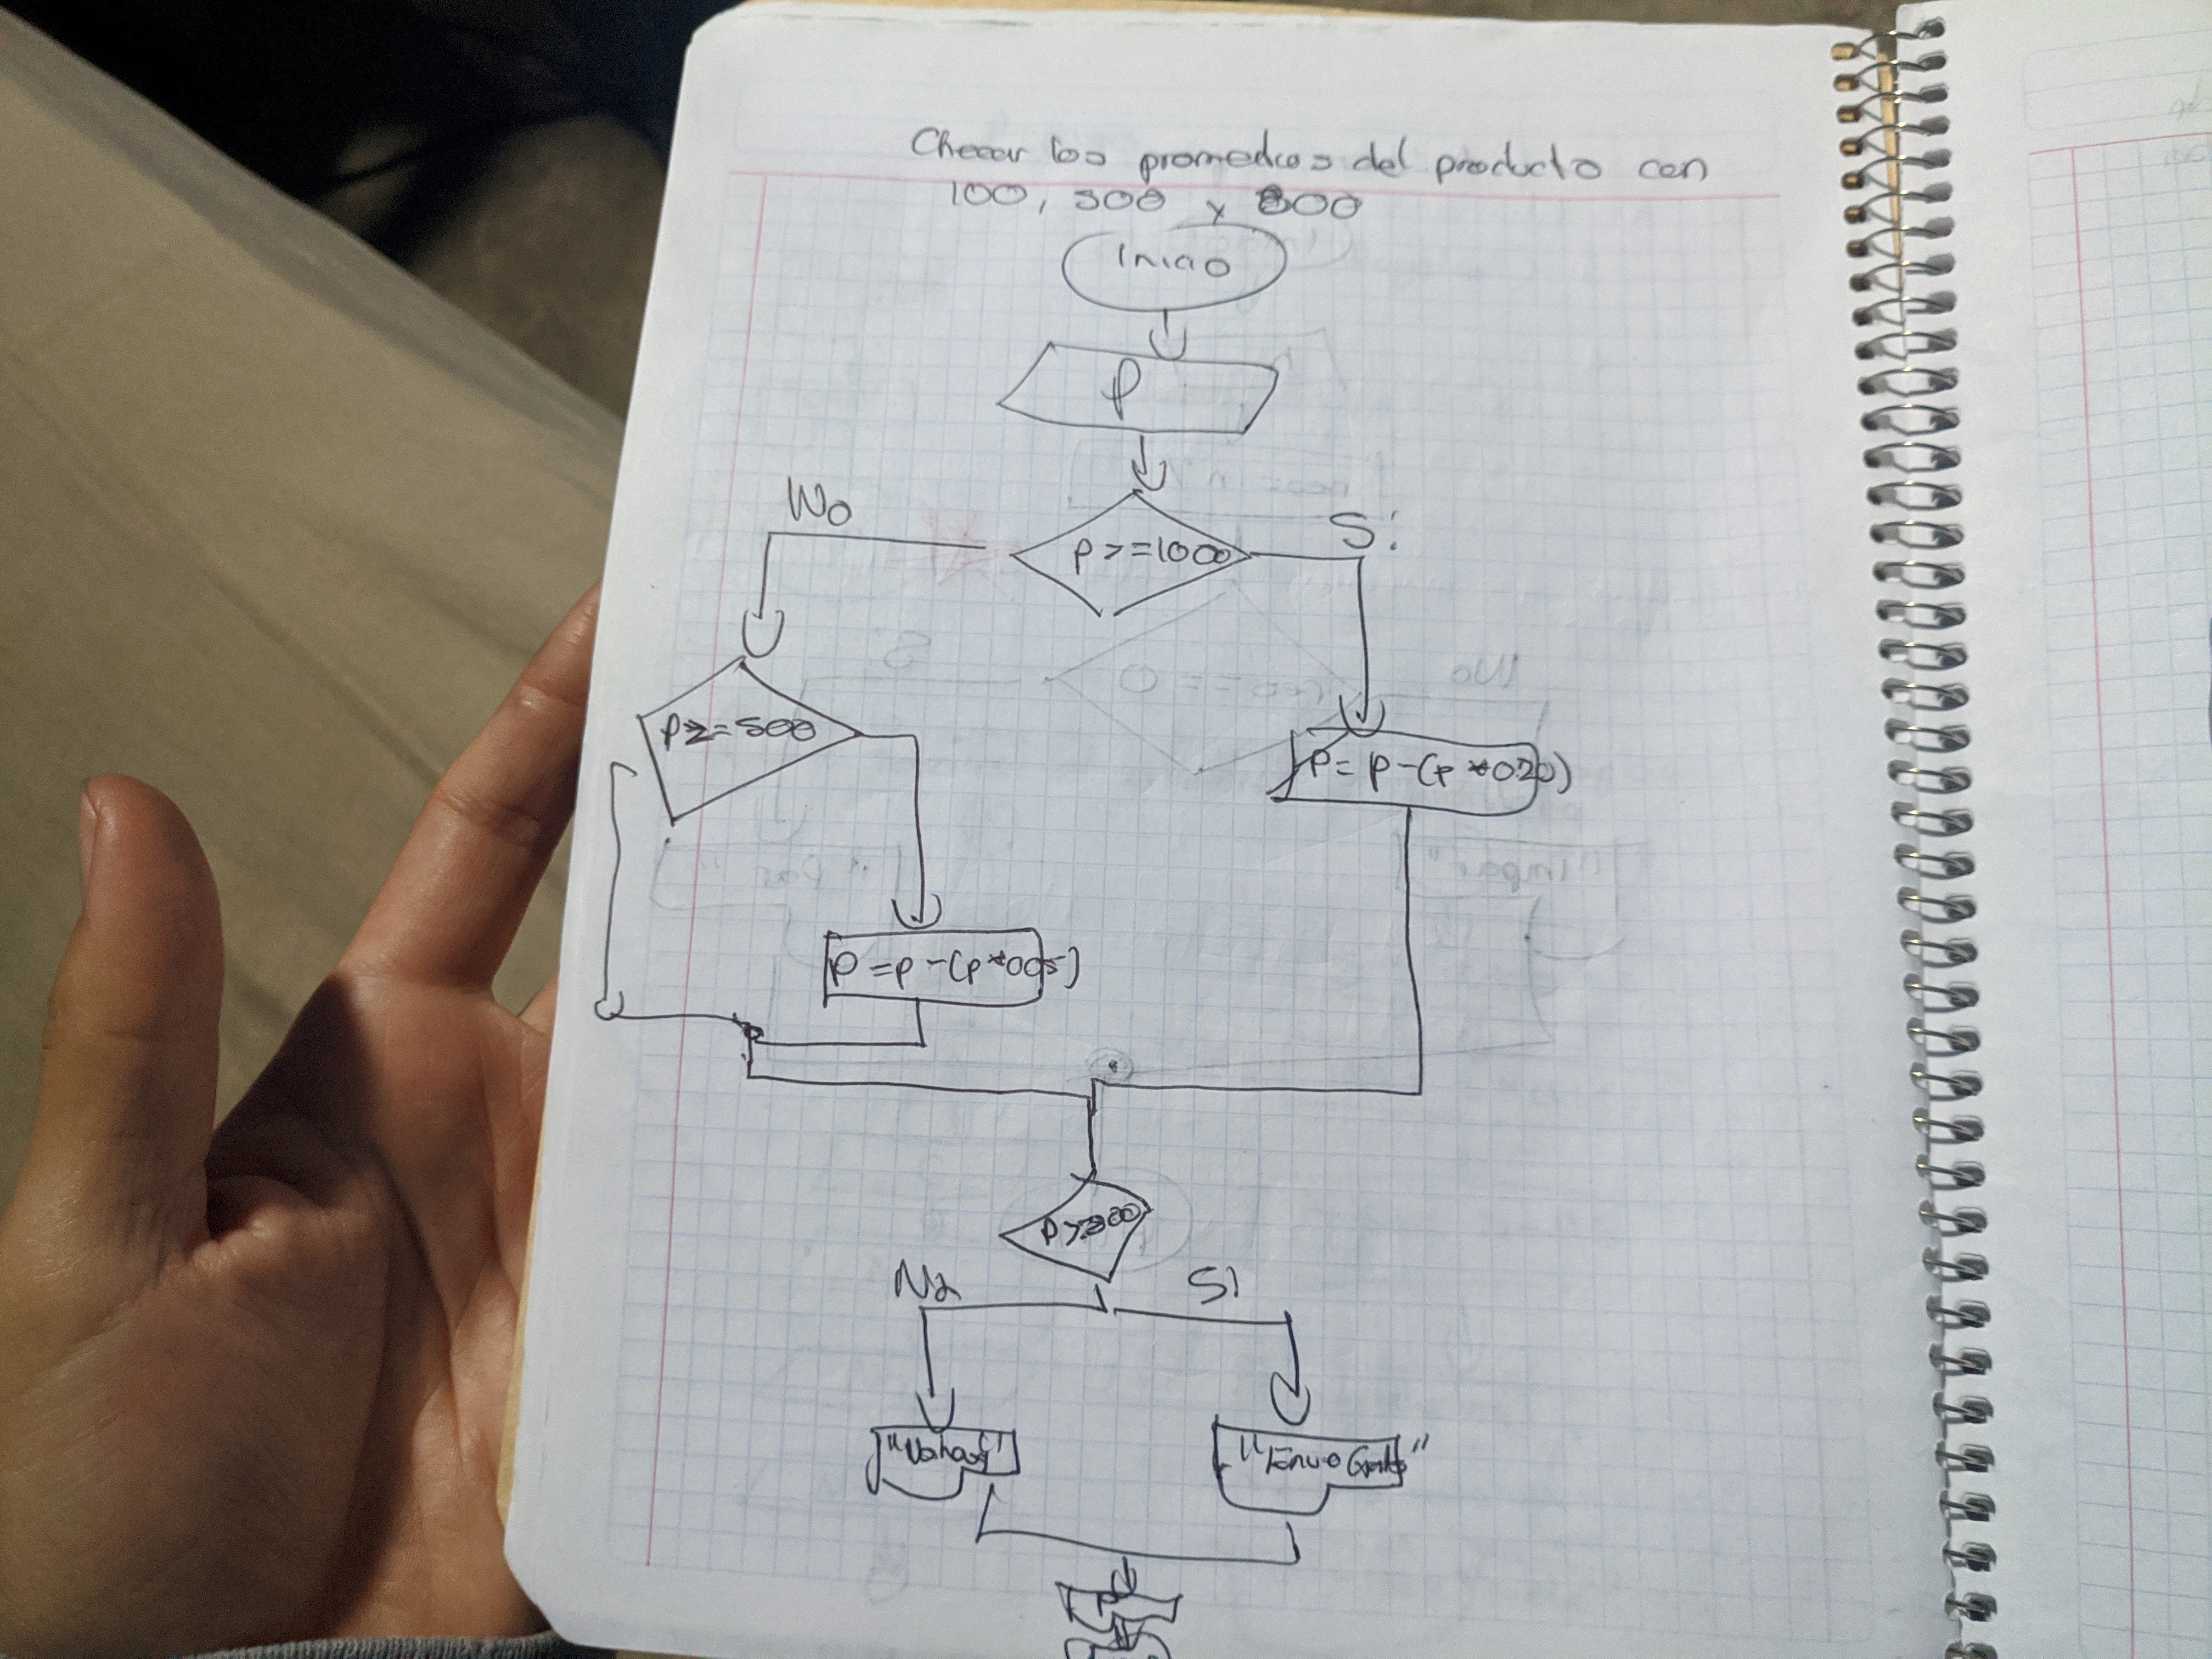 Checar los promedios del producto con
100, 500 y 800
Inicio
P
No
Si
p>=1000
p>=500
P=p-(p*0.20)
P=p-(p*005)
No
Si
"Envio Gratis"
P